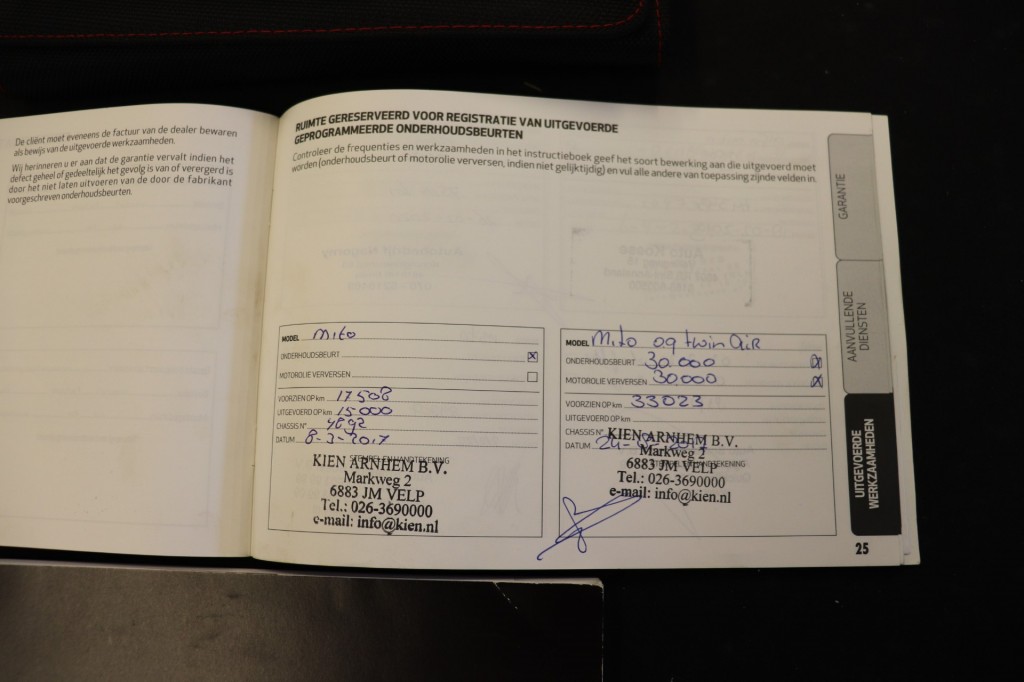 De cliënt moet eveneens de factuur van de dealer bewaren
als bewijs van de uitgevoerde werkzaamheden.
Wij herinneren u er aan dat de garantie vervalt indien het
defect geheel of gedeeltelijk het gevolg is van of verergerd is
door het niet laten uitvoeren van de door de fabrikant
voorgeschreven onderhoudsbeurten.
RUIMTE GERESERVEERD VOOR REGISTRATIE VAN UITGEVOERDE
GEPROGRAMMEERDE ONDERHOUDSBEURTEN
Controleer de frequenties en werkzaamheden in het instructieboek geef het soort bewerking aan die uitgevoerd moet
worden (onderhoudsbeurt of motorolie verversen, indien niet gelijktijdig) en vul alle andere van toepassing zijnde velden in.
MODEL Mito
ONDERHOUDSBEURT X
MOTOROLIE VERVERSEN
VOORZIEN OP km 17508
UITGEVOERD OP km 15000
CHASSIS N° 4892
DATUM 8-3-2017
STEMPEL EN HANDTEKENING
KIEN ARNHEM B.V.
Markweg 2
6883 JM VELP
Tel.: 026-3690000
e-mail: info@kien.nl
MODEL Mito 09 twin Air
ONDERHOUDSBEURT 30.000 X
MOTOROLIE VERVERSEN 30000 X
VOORZIEN OP km 33023
UITGEVOERD OP km
CHASSIS N°
DATUM 24-
STEMPEL EN HANDTEKENING
KIEN ARNHEM B.V.
Markweg 2
6883 JM VELP
Tel.: 026-3690000
e-mail: info@kien.nl
GARANTIE
AANVULLENDE
DIENSTEN
UITGEVOERDE
WERKZAAMHEDEN
25